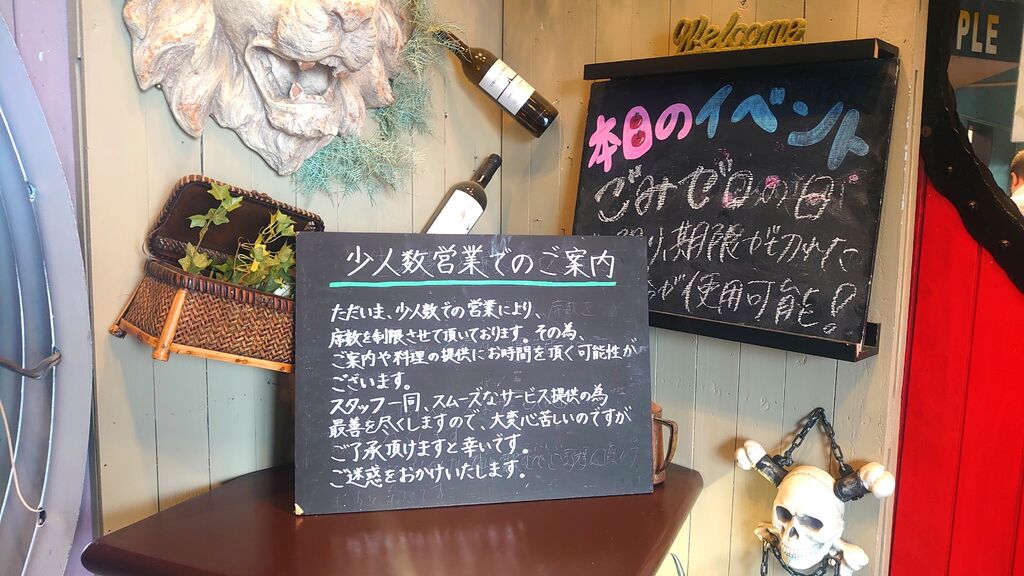 少人数営業でのご案内
ただいま、少人数での営業により、
席数を制限させて頂いております。その為、
ご案内や料理の提供にお時間を頂く可能性が
ございます。
スタッフ一同、スムーズなサービス提供の為
最善を尽くしますので、大変心苦しいのですが
ご了承頂けますと幸いです。
ご迷惑をおかけいたします。
Welcome
本日のイベント
ごみゼロの日
期限が切れた
が使用可能!
PLE